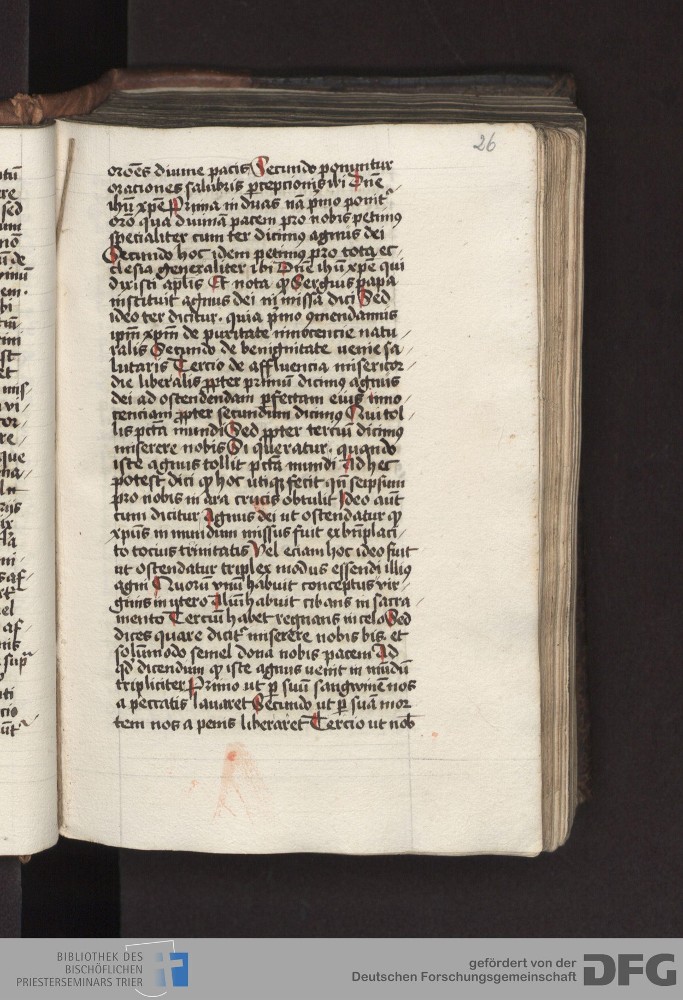 26
oro͞es diuine pacis Secundo ponu͞tur
orationes salubris p͛ceptionis ibi Dn͞e
ih͞u xp͞e Prima in duas na͞ p͛mo ponit᷑
oro͞ qua diuina͞ pacem pro nobis petimꝰ
specialiter cum ter dicimꝰ agnus dei
Secundo hoc idem petimꝰ pro tota ec
clesia generaliter ibi Dn͞e ih͞u xp͞e qui
dixisti ap͞lis Et nota ꝙ Sergius papa
instituit agnus dei in missa dici Sed
ideo ter dicitur. quia p͛mo ꝯmendamus
ip͞m xp͞m de puritate innocencie natu
ralis Secundo de benignitate uenie sa
lutaris Tercio de affluencia misericor
die liberalis ꝓpter primu͞ dicimꝰ agnus
dei ad ostendendam ꝑfectam eius inno
cenciam ꝓpter secundum dicimꝰ Qui tol
lis pc͞ta mundi Sed ꝓpter terciu͞ dicimꝰ
miserere nobis Si queratur. quando
iste agnus tollit pc͞ta mundi Ad hec
potest dici ꝙ hoc utiqꝫ fecit qn͞ seipsum
pro nobis in ara crucis obtulit Ideo aut͞
cum dicitur Agnus dei ut ostendatur ꝙ
xp͞us in mundum missus fuit ex bn͞placi
to tocius trinitatis Vel eciam hoc ideo fuit
ut ostendatur triplex modus essendi illiꝰ
agni Quoru͞ vnu͞ habuit conceptus vir
ginis in vtero Aliu͞ habuit cibans in sacra
mento Terciu͞ habet regnans in celo Sed
dices quare dicit᷑ miserere nobis bis et
solu͞modo semel dona nobis pacem Ad
qd͞ dicendum ꝙ iste agnus uenit in mu͞du͞
tripliciter Primo ut ꝑ suu͞ sangwine͞ nos
a peccatis lauaret Secundo ut ꝑ sua͞ mor
tem nos a penis liberaret Tercio ut nob
BIBLIOTHEK DES
BISCHÖFLICHEN
PRIESTERSEMINARS TRIER
gefördert von der
Deutschen Forschungsgemeinschaft
DFG